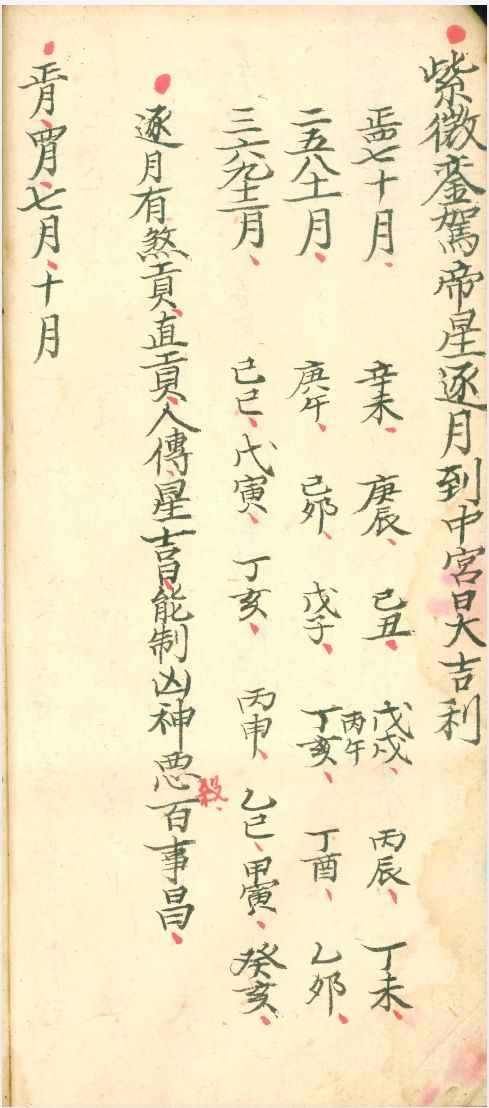 紫微銮駕帝星逐月到中宮日大吉利
正四七十月 辛未 庚辰 己丑 戊戌 丙辰 丁未
二五八十一月 庚午 己卯 戊子 丁亥 丙午 丁酉 乙卯
三六九十二月 己巳 戊寅 丁亥 丙申 乙巳 甲寅 癸亥
逐月有煞貢直貢人傳星吉日能制凶神悪殺百事昌
正月四月七月十月